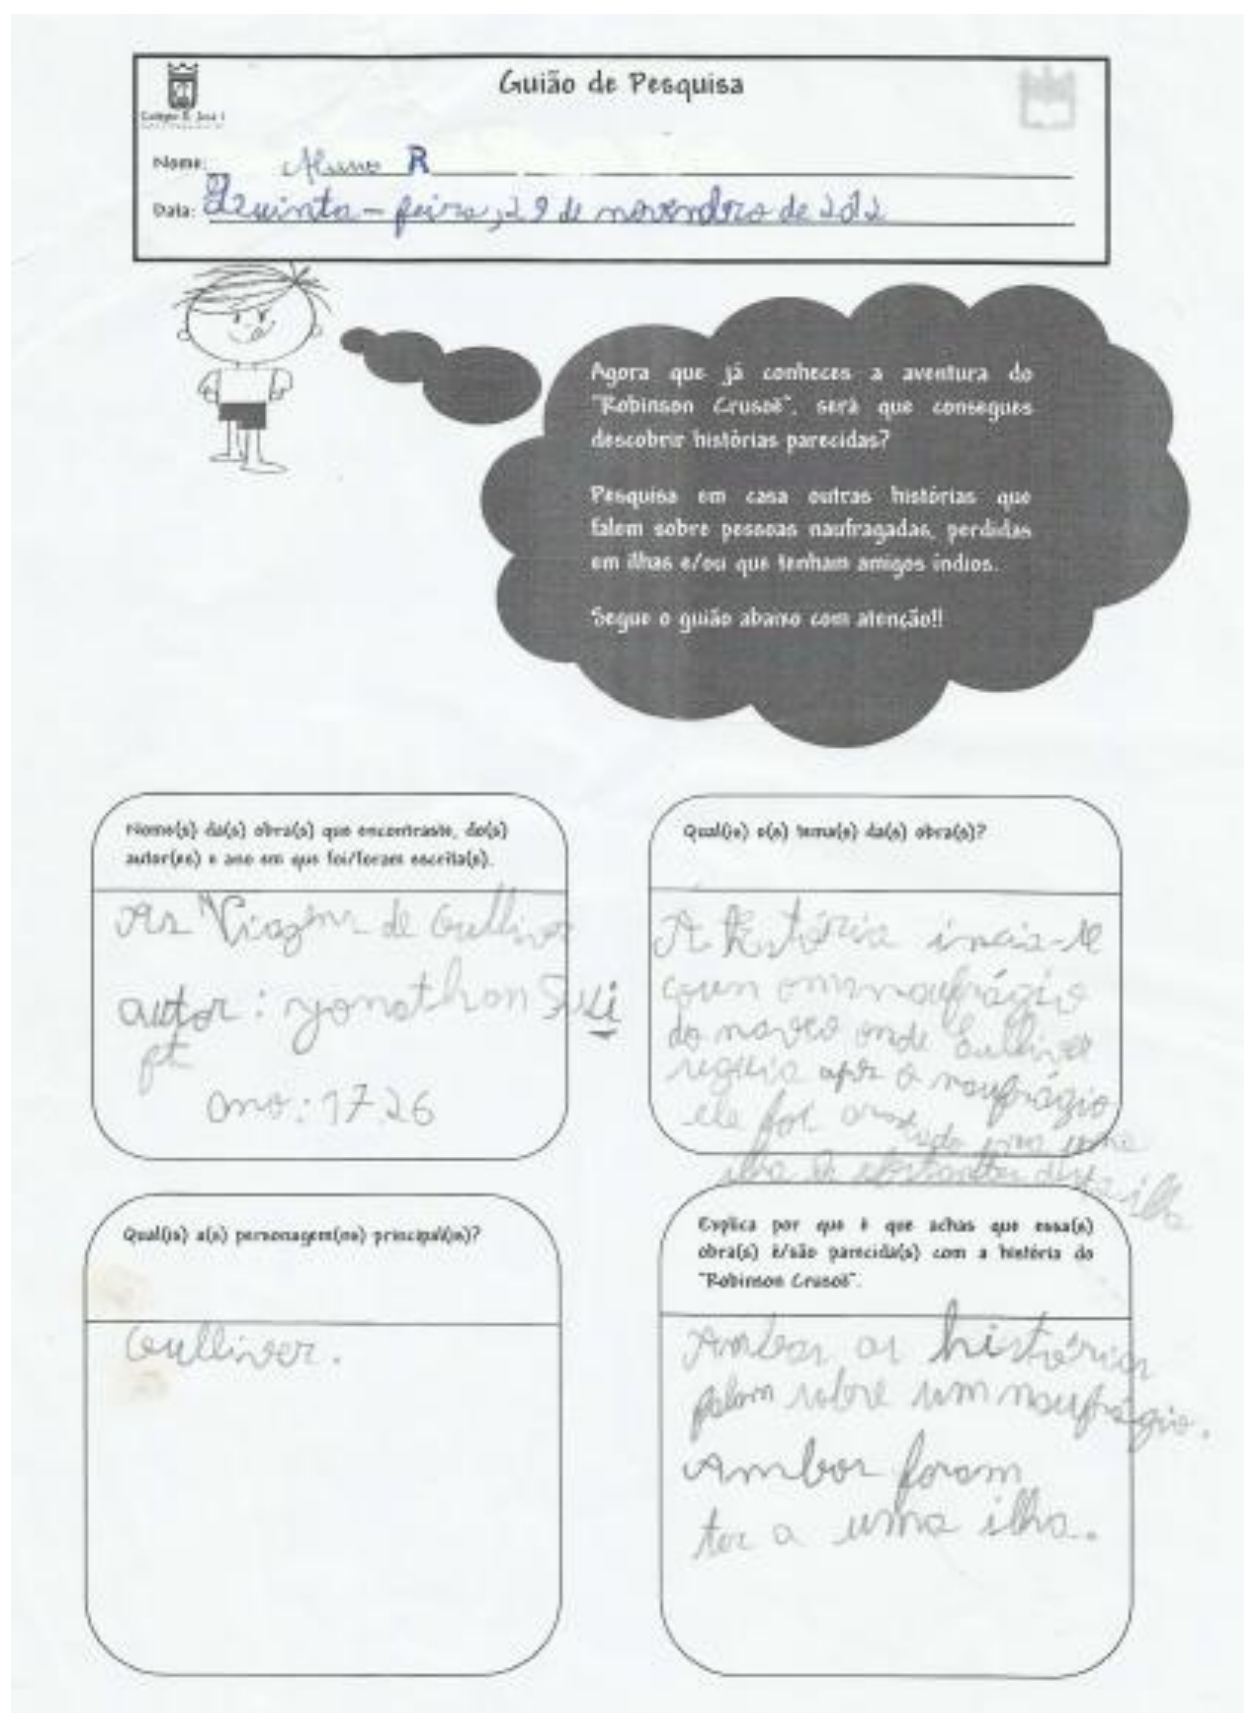 Guião de Pesquisa
Colégio D. José I
Nome: Aluno R
Data: Quinta-feira, 29 de novembro de 2012
Agora que já conheces a aventura do
"Robinson Crusoé", será que consegues
descobrir histórias parecidas?
Pesquisa em casa outras histórias que
falem sobre pessoas naufragadas, perdidas
em ilhas e/ou que tenham amigos índios.
Segue o guião abaixo com atenção!!
Nome(s) da(s) obra(s) que encontraste, do(s)
autor(es) e ano em que foi/foram escrita(s).
As Viagens de Gulliver
autor: yonathan Swi
ft
ano: 1726
Qual(is) o(s) tema(s) da(s) obra(s)?
A história incia-se
com um naufrágio
do navio onde Gulliver
seguia após o naufrágio
ele foi arrastado para uma
ilha desta ilha
Qual(is) a(s) personagem(ns) principal(is)?
Gulliver.
Explica por que é que achas que essa(s)
obra(s) é/são parecida(s) com a história do
"Robinson Crusoé".
Ambas as histórias
falam sobre um naufrágio.
Ambos foram
ter a uma ilha.